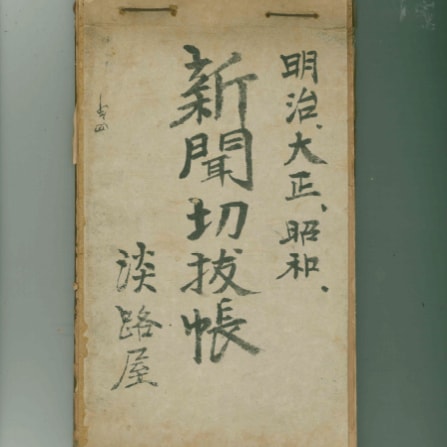 明治、大正、昭和、
新聞切抜帳
淡路屋